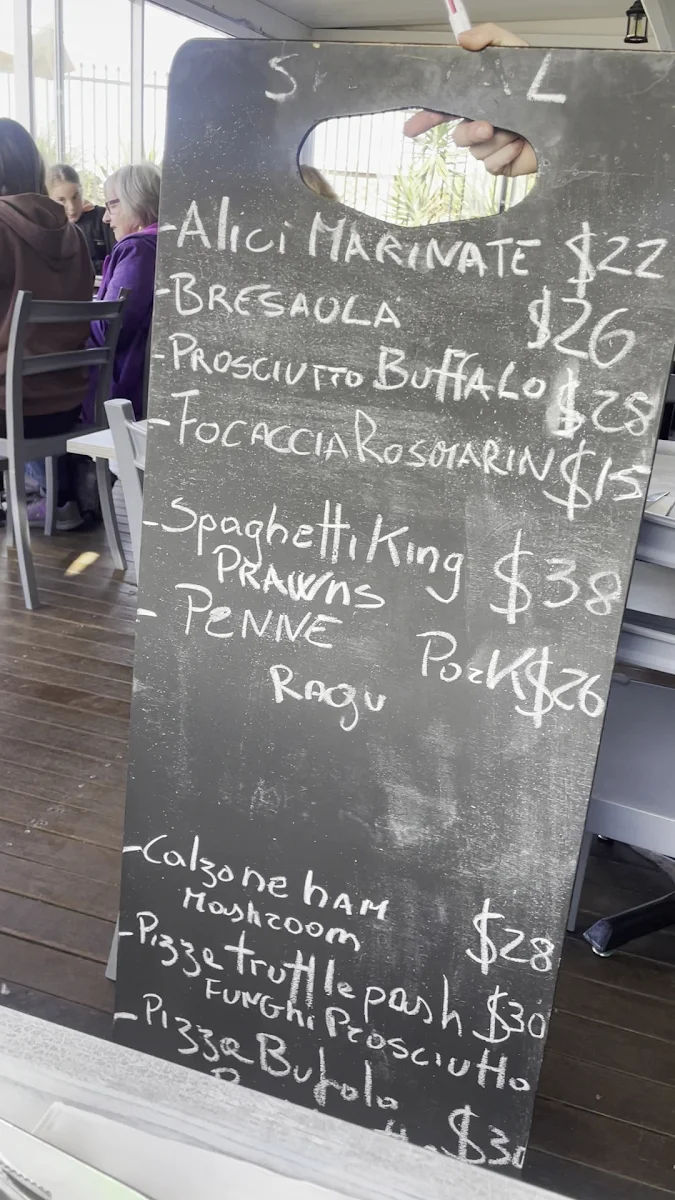 S L
-Alici MARINATE $22
-BRESAOLA $26
-PROSCIUTTO BuffALO $28
-FOCACCIA ROSMARIN $15
-Spaghetti King $38
PRAWNS
- PENNE PorK $26
RAgu
-Calzone hAM
Moshroom $28
-Pizza truffle pash $30
FUNGHi Prosciutto
-Pizza Bufala
$30